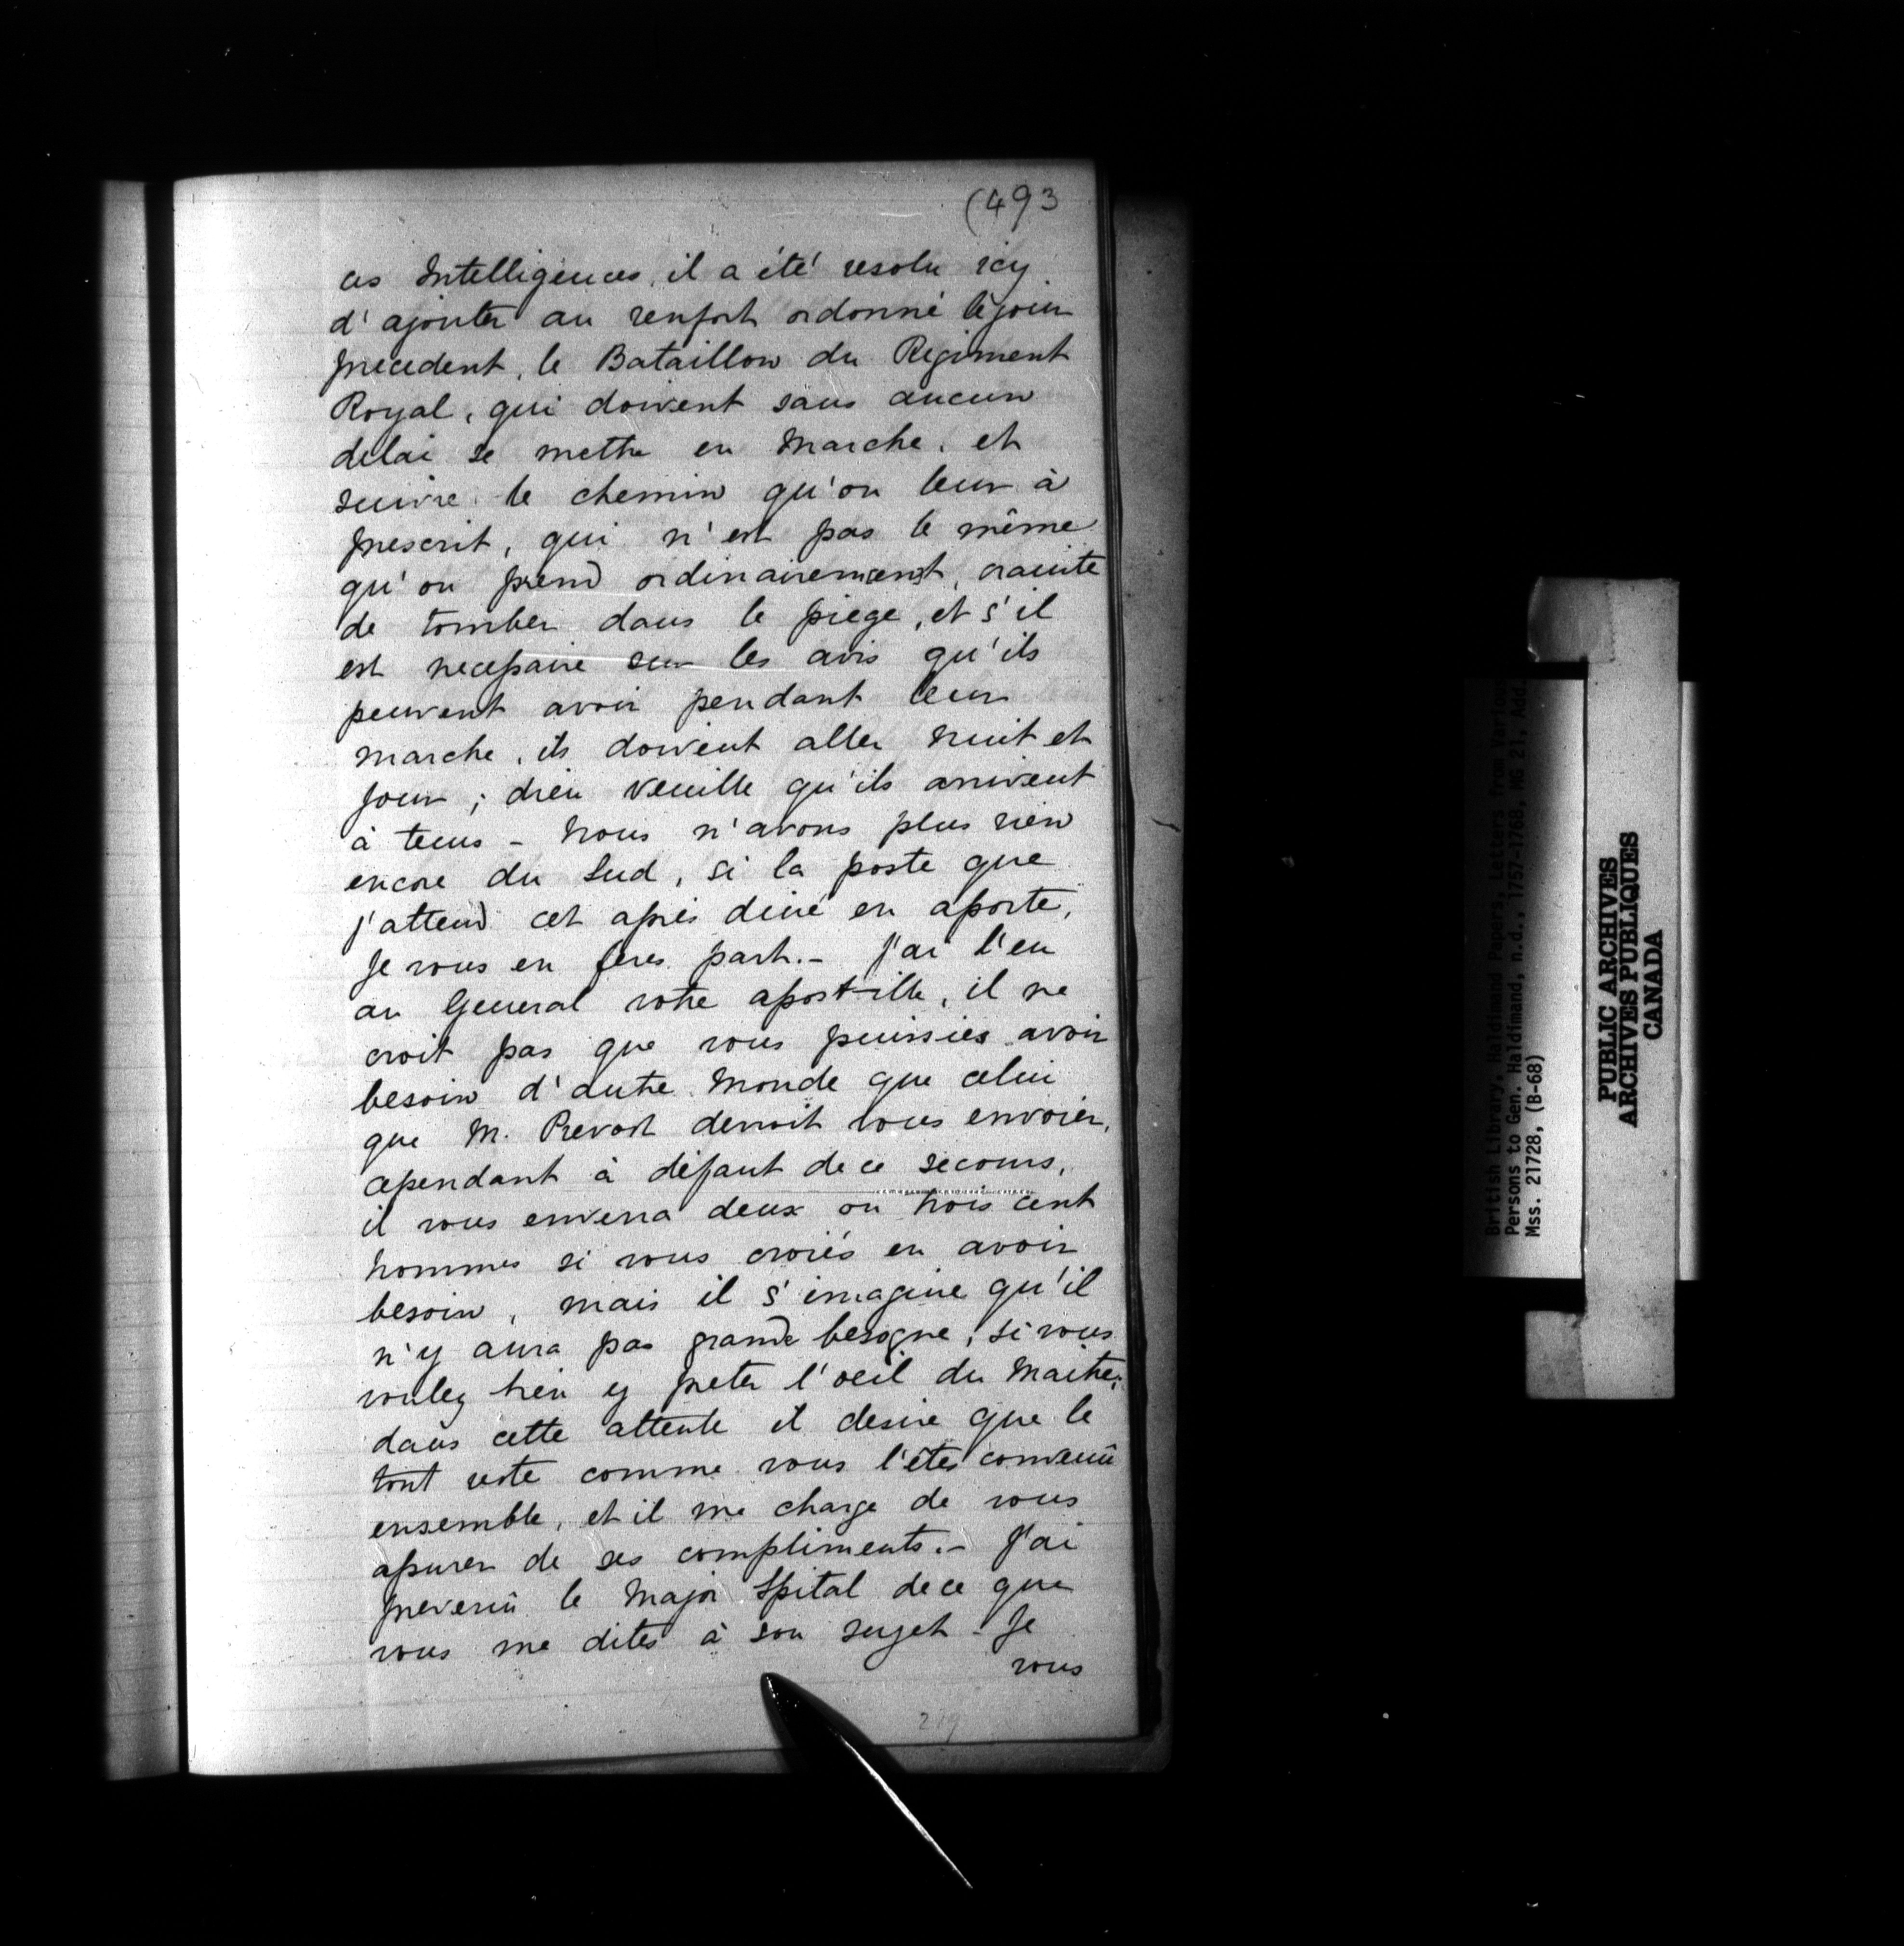 (493
ces Intelligences, il a été resolu icy
d'ajouter au renfort ordonné le jour
precedent, le Bataillon du Regiment
Royal, qui doivent sans aucun
delai se mettre en Marche, et
suivre le chemin qu'on leur à
prescrit, qui n'est pas le même
qu'on prend ordinairement, crainte
de tomber dans le piege, et s'il
est necessaire sur les avis qu'ils
peuvent avoir pendant leur
marche, ils doivent aller Nuit et
Jour ; dieu Veuille qu'ils arrivent
à tems - Nous n'avons plus rien
encore du Sud, si la poste que
j'attend cet après diné en aporte,
Je vous en feres part. - J'ai l'eu
au General votre apostille, il ne
croit pas que vous puissies avoir
besoin d'autre Monde que celui
que M. Prevost devroit vous envoier,
cependant à défaut de ce secours,
il vous enverra deux ou trois cent
hommes si vous croiés en avoir
besoin, mais il s'imagine qu'il
n'y aura pas grande besogne, si vous
voulez bien y preter l'oeil du Maitre;
dans cette attente il desire que le
tout reste comme vous l'êtes convenû
ensemble, et il me charge de vous
assurer de ses compliments. - J'ai
prevenû le Major Spital de ce que
vous me dites à son sujet - Je
vous
219
British Library, Haldimand Papers, Letters from Various
Persons to Gen. Haldimand, n.d., 1757-1768, MG 21, Add.
Mss. 21728, (B-68)
PUBLIC ARCHIVES
ARCHIVES PUBLIQUES
CANADA